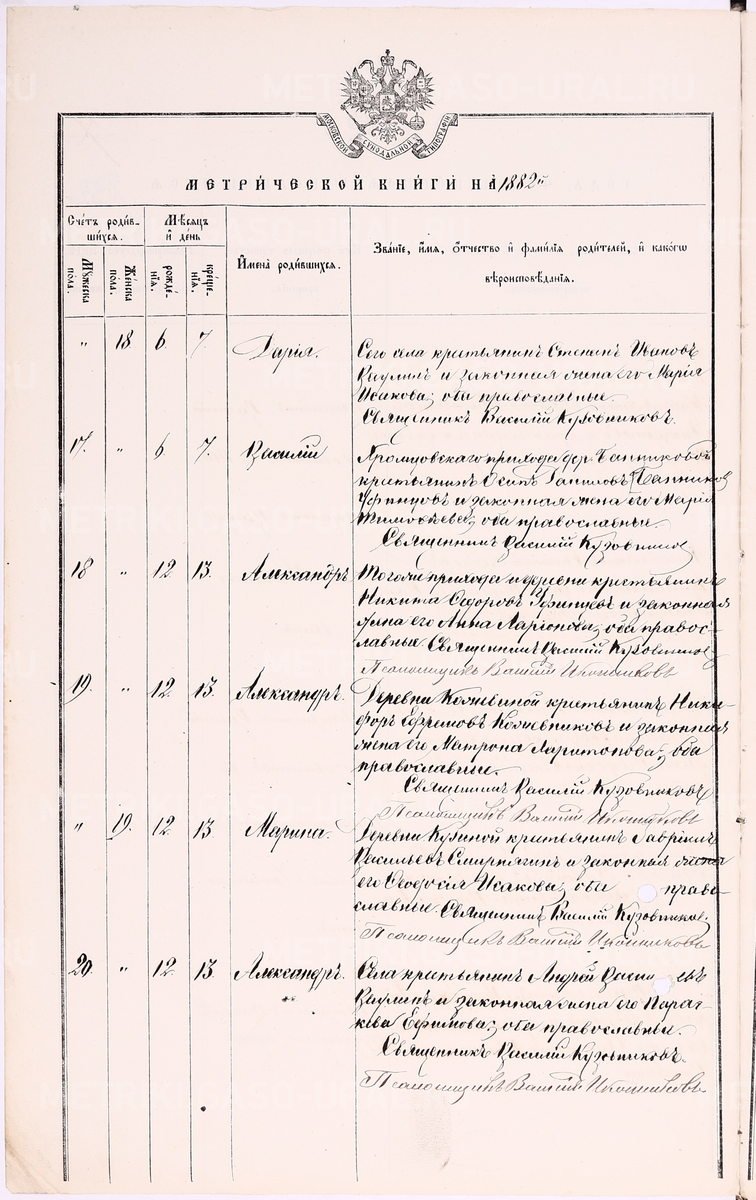 МОСКОВСКОЙ СѴНОДАЛЬНОЙ ТИПОГРАФІИ
МЕТРИ́ЧЕСКОЙ КНИ́ГИ НА̀ 1882й
Сче́тъ роди́в-
шихся.
Мѣ́сяцъ
и҆ де́нь
Мꙋ́жеска
по́ла.
Же́нска
по́ла.
рожде́-
нїѧ.
креще́-
нїѧ.
И҆мена̀ роди́вшихся.
Зва́нїе, и҆́мя, ѻ҆́тчество и҆ фами́лїа роди́телей, и҆ како́гѡ
вѣроисповѣ́данїѧ.
" 18 6 7. Дарія. Сего села крестьянинъ Степанъ Ивановъ
Ваулинъ и законная жена его Марія
Исакова; оба православные.
Священникъ Василій Кузовниковъ.
17. " 6 7. Василій прихода дер.
крестьянинъ Осипъ
и законная жена его Марія
Тимофѣева; оба православные
Священникъ Василій Кузовниковъ
18 " 12 13. Александръ Тогожъ прихода и деревни крестьянинъ
Никита Ѳедоровъ Уфинцевъ и законная
жена его Анна Ларіонова; оба право-
славные Священникъ Василій Кузовниковъ
Псаломщикъ
19. " 12 13. Александръ. Деревни крестьянинъ Ники-
форъ Ефремовъ Кожевниковъ и законная
жена его Матрона Харитонова; оба
православные.
Священникъ Василій Кузовниковъ
Псаломщикъ
" 19. 12 13 Марина. Деревни крестьянинъ Гавріилъ
Васильевъ Смирнягинъ и законная жена
его Ѳеодосія Исакова; оба право-
славные. Священникъ Василій Кузовниковъ
Псаломщикъ
20. " 12. 13. Александръ. Села крестьянинъ Андрей
Ваулинъ и законная жена его Парас-
кева Ефимова; оба православные.
Священникъ Василій Кузовниковъ.
Псаломщикъ